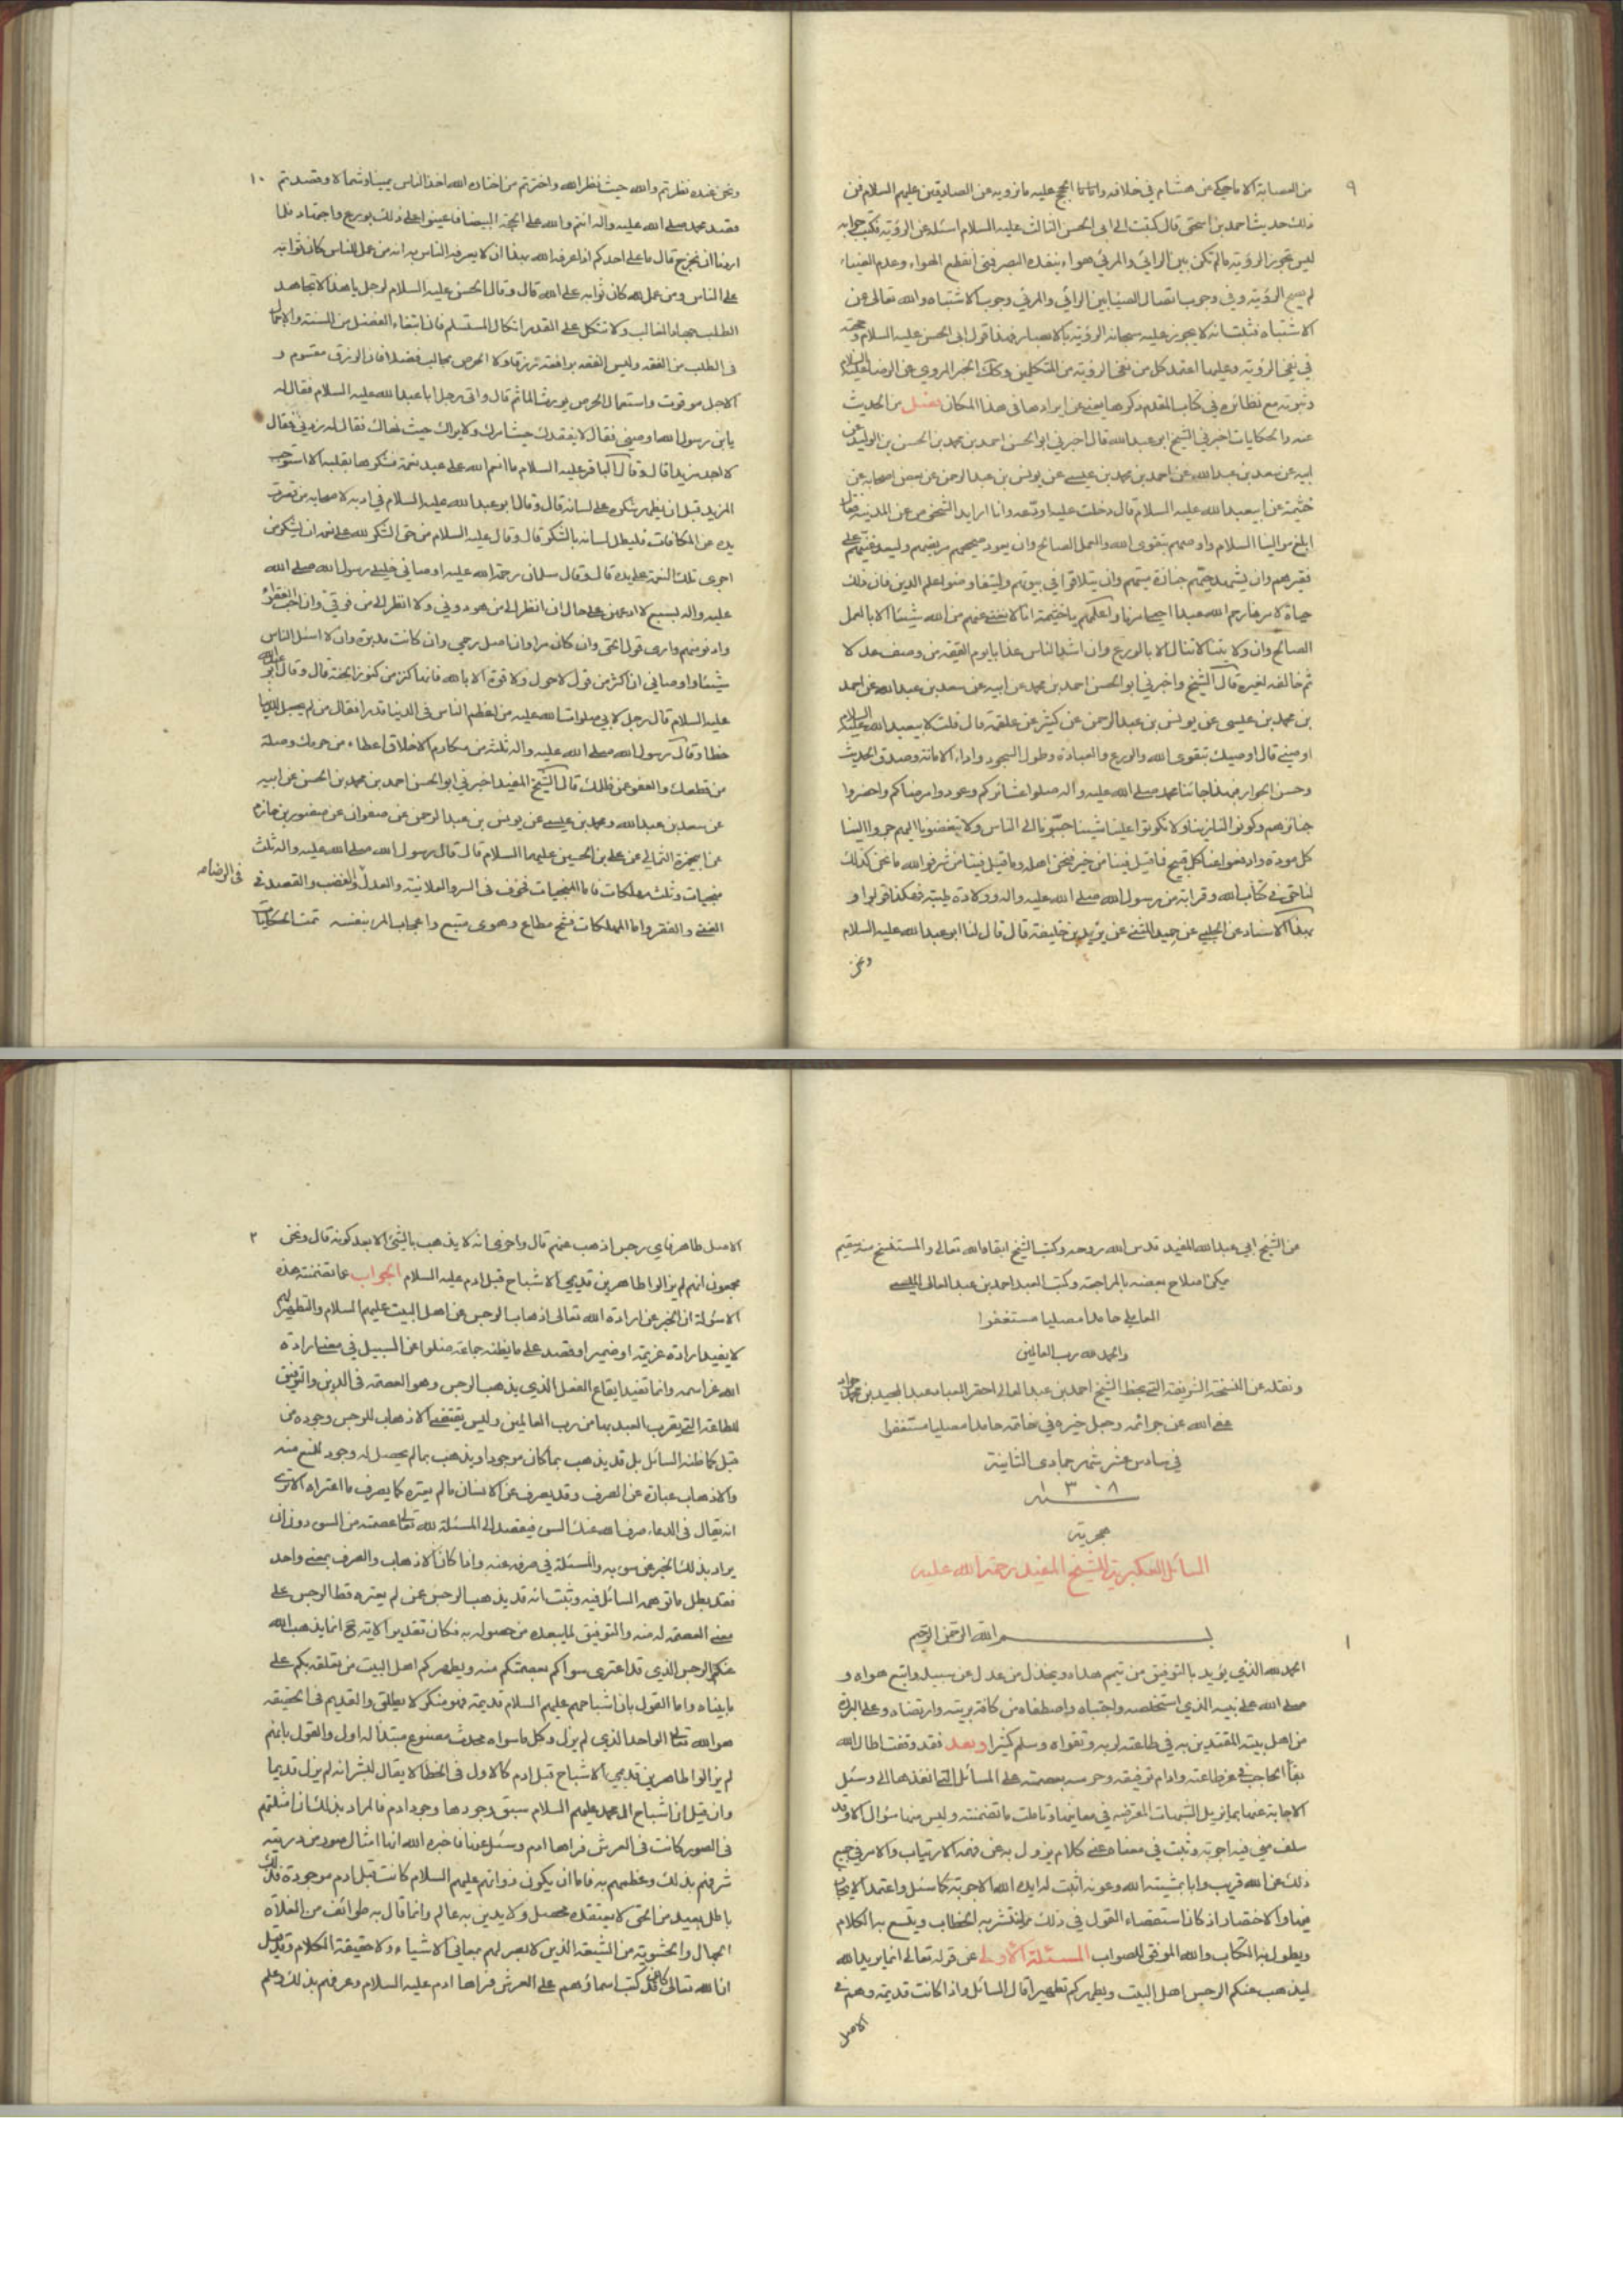 ٩
من العصابة الا ما حكي عن هشام في خلافه واما ما احتج عليه ما نرويه عن الصادقين عليهم السلام فمن
ذلك حديث احمد بن اسحق قال كتبت الى ابي الحسن الثالث عليه السلام اسئله عن الرؤية فكتب جوابه
ليس تجوز الرؤية ما لم تكن بين الرائي والمرئي هواء ينفذه البصر فمتى انقطع الهواء وعدم الضياء
لم يصح الرؤية وفي وجوب اتصال الضياء بين الرائي والمرئي وجوب الاشتباه والله تعالى عن
الاشتباه فثبت انه لا يجوز عليه سبحانه الرؤية بالابصار فهذا قول ابي الحسن عليه السلام وحجته
في نفي الرؤية وعليها اعتمد كل من نفى الرؤية من المتكلمين وكذلك الخبر المروي عن الرضا عليه السلام
وثبوته مع نظائره في كتابي المقدم ذكرها يغني عن ايرادها في هذا المكان فصل من الحديث
عنه والحكايات اخبرني الشيخ ابو عبدالله قال اخبرني ابو الحسن احمد بن محمد بن الحسن بن الوليد عن
ابيه عن سعد بن عبدالله عن احمد بن محمد بن عيسى عن يونس بن عبد الرحمن عن بعض اصحابه عن
خثيمة عن ابي عبدالله عليه السلام قال دخلت عليه اودعه وانا اريد الشخوص عن المدينة فقال
ابلغ موالينا السلام واوصهم بتقوى الله والعمل الصالح وان يعود صحيحهم مريضهم وليعد غنيهم على
فقيرهم وان يشهد حيهم جنازة ميتهم وان يتلاقوا في بيوتهم وليتفاوضوا علم الدين فان ذلك
حياة لامرنا رحم الله عبدا احيا امرنا واعلمهم يا خثيمة انا لا نغني عنهم من الله شيئا الا بالعمل
الصالح وان ولايتنا لا تنال الا بالورع وان اشد الناس عذابا يوم القيمة من وصف عدلا
ثم خالفه الى غيره قال الشيخ واخبرني ابو الحسن احمد بن محمد عن ابيه عن سعد بن عبدالله عن احمد
بن محمد بن عيسى عن يونس بن عبد الرحمن عن كثير عن علقمة قال قلت لابي عبدالله عليه السلام
اوصني قال اوصيك بتقوى الله والورع والعبادة وطول السجود واداء الامانة وصدق الحديث
وحسن الجوار فبهذا جائنا محمد صلى الله عليه وآله صلوا عشائركم وعودوا مرضاكم واحضروا
جنائزهم وكونوا لنا زينا ولا تكونوا علينا شينا حببونا الى الناس ولا تبغضونا اليهم جروا الينا
كل مودة وادفعوا عنا كل قبيح فما قيل فينا من خير فنحن اهله وما قيل فينا من شر فوالله ما نحن كذلك
لنا حق في كتاب الله وقرابة من رسول الله صلى الله عليه واله وولادة طيبة فهكذا قولوا و
بهذا الاسناد عن الحلبي عن حميد المثنى عن يزيد بن خليفة قال قال لنا ابو عبدالله عليه السلام
ونحن
١٠
ونحن عنده نظرتم والله حيث نظر الله واخترتم من اختاره الله اخذ الناس يمينا وشمالا وقصدتم
قصد محمد صلى الله عليه واله انتم والله على المحجة البيضاء فاعينوا على ذلك بورع واجتهاد فلما
اردنا ان نخرج قال ما على احدكم اذا عرفه الله بهذا ان لا يعرفه الناس به انه من عمل للناس كان ثوابه
على الناس ومن عمل لله كان ثوابه على الله قال وقال الحسن عليه السلام لرجل يا هذا لا تجاهد
الطلب جهاد الغالب ولا تتكل على القدر اتكال المستسلم فان ابتغاء الفضل من السنة والاجمال
في الطلب من العفة وليس العفة بدافعة رزقا ولا الحرص بجالب فضلا فان الرزق مقسوم و
الاجل موقوت واستعمال الحرص يورث المآثم قال واتى رجل ابا عبدالله عليه السلام فقال له
يا بن رسول الله اوصني فقال لا يفقدك حيث امرك ولا يراك حيث نهاك فقال له زدني فقال
لا اجد مزيدا قال وقال الباقر عليه السلام ما انعم الله على عبد نعمة فشكرها بقلبه الا استوجب
المزيد قبل ان يظهر شكره على لسانه قال وقال ابو عبدالله عليه السلام في ادبه لاصحابه من قصرت
يده عن المكافات فليطل لسانه بالشكر قال وقال عليه السلام من حق الشكر لله على نعمه ان يشكر من
اجرى تلك النعمة على يده قال وقال سلمان رحمة الله عليه اوصاني خليلي رسول الله صلى الله
عليه واله بسبع لا ادعهن على حال ان انظر الى من هو دوني ولا انظر الى من فوقي وان احب الفقراء
وادنو منهم وارى قول الحق وان كان مرا وان اصل رحمي وان كانت مدبرة وان لا اسئل الناس
شيئا واوصاني ان اكثر من قول لا حول ولا قوة الا بالله فانها كنز من كنوز الجنة قال وقال ابو عبدالله
عليه السلام قال رجل لابي صلوات الله عليه من اعظم الناس في الدنيا قدرا فقال من لم يجعل الدنيا
خطرا وقال رسول الله صلى الله عليه واله ثلث من مكارم الاخلاق اعطاء من حرمك وصلة
من قطعك والعفو عن ظلمك قال الشيخ المفيد اخبرني ابو الحسن احمد بن محمد بن الحسن عن ابيه
عن سعد بن عبدالله ومحمد بن عيسى عن يونس بن عبد الرحمن عن صفوان عن منصور بن حازم
عن ابي حمزة الثمالي عن علي بن الحسين عليهما السلام قال قال رسول الله صلى الله عليه واله ثلث
منجيات وثلث مهلكات فاما المنجيات فخوف في السر والعلانية والعدل في الغضب والقصد في
في الرضا صح
الغنى والفقر واما المهلكات فشح مطاع وهوى متبع واعجاب المرء بنفسه تمت الحكايات
عن الشيخ ابي عبدالله المفيد قدس الله روحه وكتب الشيخ ابقاه الله تعالى والمستنسخ منه سقيم
يمكن اصلاح بعضه بالمراجعة وكتب العبد احمد بن عبد العالي الميسي
العاملي حامدا مصليا مستغفرا
والحمد لله رب العالمين
ونقله عن النسخة الشريفة التي بخط الشيخ احمد بن عبد العالي احقر العباد عبد المجيد بن محمد جواد
عفى الله عن جرائمه وجعل خيره في خاتمه حامدا مصليا مستغفرا
في سادس عشر شهر جمادى الثانية
سنة ١٣٠٨
هجرية
المسائل العكبرية للشيخ المفيد رحمة الله عليه
١
بسم الله الرحمن الرحيم
الحمد لله الذي يؤيد بالتوفيق من تيمم هداه ويخذل من عدل عن سبيله واتبع هواه و
صلى الله على نبيه الذي استخلصه واجتباه واصطفاه من كافة بريته وارتضاه وعلى البررة
من اهل بيته المقتدين به في طاعته لربه وتقواه وسلم كثيرا وبعد فقد وقفت اطال الله
بقاء الحاجب في عز طاعته وادام توفيقه وحرسه بعصمته على المسائل التي انفذها الي وسئل
الاجابة عنها بما يزيل الشبهات المعترضة في معانيها وتاملت ما تضمنته وليس منها سؤال الا وقد
سلف مني فيه اجوبة وثبت في معناه عني كلام يزول به عمن فهمه الارتياب والامر في جميع
ذلك عن الله قريب وانا بمشيئة الله وعونه اثبت له ايده الله الاجوبة كما سئل واعتمد الايجاز
فيها والاختصار اذ كان استقصاء القول في ذلك مما ينتشر به الخطاب ويتسع به الكلام
ويطول به الكتاب والله الموفق للصواب المسئلة الاولى عن قوله تعالى انما يريد الله
ليذهب عنكم الرجس اهل البيت ويطهركم تطهيرا قال السائل واذا كانت قديمة وهم في
الاصل
٢
الاصل طاهر فاي رجس اذهب عنهم قال واخرى انه لا يذهب بالشيء الا بعد كونه قال ونحن
مجمعون انهم لم يزالوا طاهرين قديمي الاشباح قبل ادم عليه السلام الجواب عما تضمنته هذه
الاسئولة ان الخبر عن ارادة الله تعالى اذهاب الرجس عن اهل البيت عليهم السلام والتطهير لهم
لا يفيد ارادة عزيمة او ضمير او قصد على ما يظنه جماعة ضلوا عن السبيل في معنى ارادة
الله عز اسمه وانما تفيد ايقاع الفعل الذي يذهب الرجس وهو العصمة في الدين والتوفيق
للطاعة التي يقرب العبد بها من رب العالمين وليس يقتضي الاذهاب للرجس وجوده من
قبل كما ظنه السائل بل قد يذهب بما كان موجودا ويذهب بما لم يحصل له وجود للمنع منه
والاذهاب عبارة عن الصرف وقد يصرف عن الانسان ما لم يعتره كما يصرف ما اعتراه الا ترى
انه يقال في الدعاء صرف الله عنك السوء فيقصد الى المسئلة لله تعالى عصمته من السوء دون ان
يراد بذلك الخبر عن سوء به والمسئلة في صرفه عنه واذا كان الاذهاب والصرف بمعنى واحد
فقد بطل ما توهمه السائل فيه وثبت انه قد يذهب الرجس عمن لم يعتره قط الرجس على
معنى العصمة له منه والتوفيق لما يبعده من حصوله به فكان تقدير الاية ح انما يذهب الله
عنكم الرجس الذي قد اعترى سواكم بعصمتكم منه ويطهركم اهل البيت من تعلقه بكم على
ما بيناه واما القول بان اشباحهم عليهم السلام قديمة فهو منكر لا يطلق والقديم في الحقيقة
هو الله تعالى الواحد الذي لم يزل وكل ما سواه محدث مصنوع مبتدأ له اول والقول بانهم
لم يزالوا طاهرين قديمي الاشباح قبل ادم كالاول في الخطا لا يقال لبشر انه لم يزل قديما
وان قيل ان اشباح ال محمد عليهم السلام سبق وجودها وجود ادم فالمراد بذلك ان امثلتهم
في الصور كانت في العرش فراها ادم وسئل عنها فاخبره الله انها امثال صور من ذريته
شرفهم بذلك وعظمهم به فاما ان يكون ذواتهم عليهم السلام كانت قبل ادم موجودة فذلك
باطل بعيد من الحق لا يعتقده محصل ولا يدين به عالم وانما قال به طوائف من الغلاة
الجهال والحشوية من الشيعة الذين لا بصر لهم بمعاني الاشياء ولا حقيقة الكلام وقد قيل
ان الله تعالى كان قد كتب اسماؤهم على العرش فراها ادم عليه السلام وعرفهم بذلك وعلم